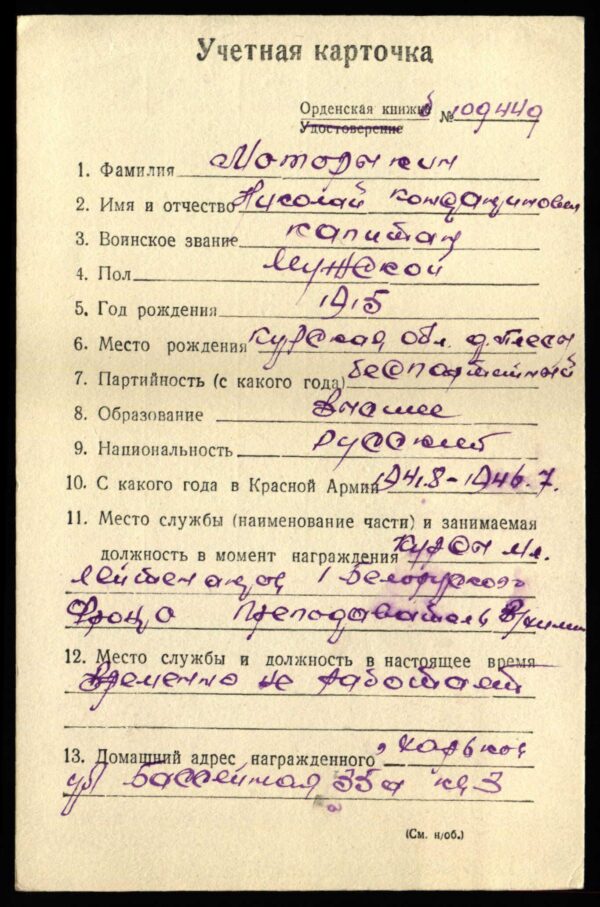 Учетная карточка
Орденская книжка б № 109449
Удостоверение
1. Фамилия Моторыкин
2. Имя и отчество Николай
3. Воинское звание капитан
4. Пол Мужской
5. Год рождения 1915
6. Место рождения Курская обл. д. Плесы
7. Партийность (с какого года) беспартийный
8. Образование Высшее
9. Национальность русский
10. С какого года в Красной Армии 1941.8-1946.7.
11. Место службы (наименование части) и занимаемая
должность в момент награждения Курсы мл.
лейтенантов 1 Белорусского
Фронта Преподаватель
12. Место службы и должность в настоящее время
Временно не работает
13. Домашний адрес награжденного г. Харьков
ул Бассейная 35а кв 3
(См. н/об.)